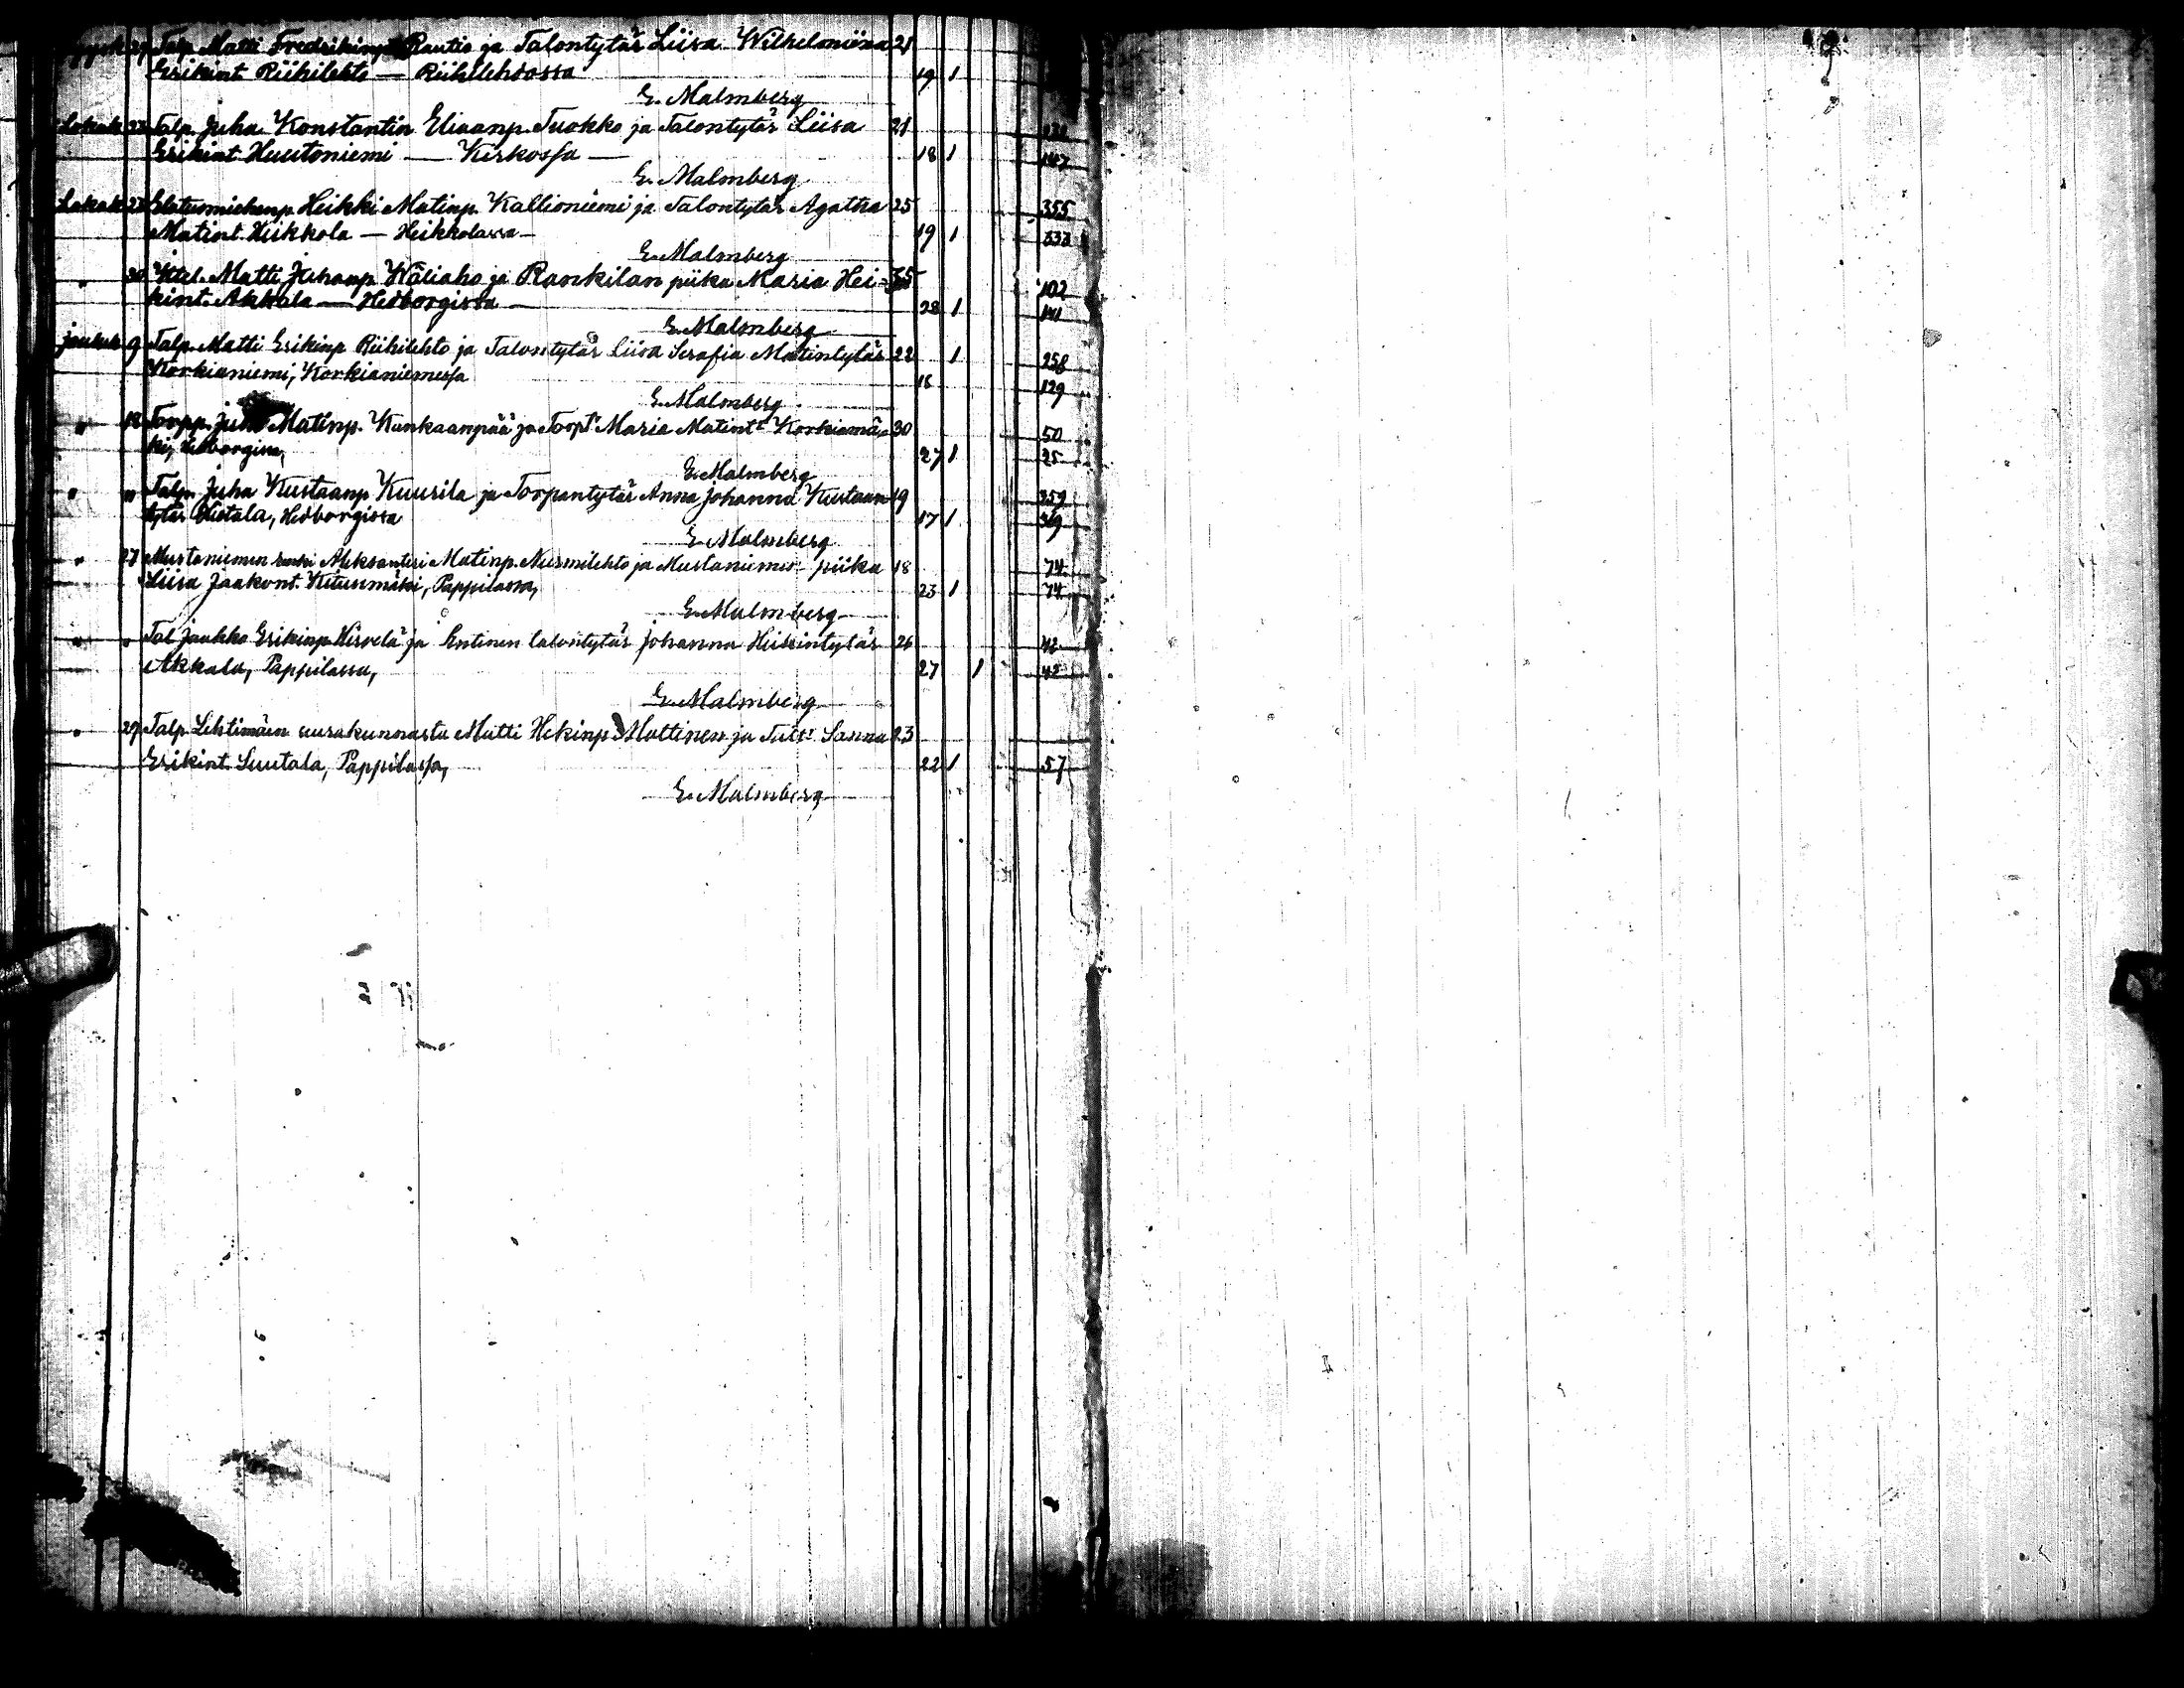 29 Talp. Matti Fredrikinp. Rautio ja Talontytär Liisa Wilhelmiina 21
Erikint Riihilehto — Riihilehdossa 19 1
E. Malmberg
Lokak. Talp. Juha Konstantin Eliaanp. Tuokko ja Talontytär Liisa 21
Erikint Huutoniemi — Kirkossa — 18 1 147
E. Malmberg
Lokak. Matinp. Kallioniemi ja Talontytär Agatha 25 355
Matint. Heikkola — Heikkolassa — 19 1 333
E. Malmberg
" 30 Ittel. Matti Juhanp. Wäliaho ja Rankilan piika Maria Hei- 35 102
kint. Akkala — Hedborgissa — 28 1 141
E. Malmberg
jouluk. 9 Talp. Matti Erikinp Riihilehto ja Talontytär Liisa Serafia Matintytär 22 1 258
Korkianiemi, Korkianiemessa 18 129
E. Malmberg
" 18 Torpp. Juho Matinp. Kankaanpää ja Torpt. Maria Matint. Korkiamä- 30 50
ki, Hedborgissa, 27 1 25
E. Malmberg
" " Talp. Juha Kustaanp. Kuusila ja Torpantytär Anna Johanna Kustaan- 19 359
tytär Hietala, Hedborgissa 17 1 369
E. Malmberg
" 27 Mustaniemen renki Aleksanteri Matinp. Nurmilehto ja Mustaniemen piika 18 74
Liisa Jaakont. Kitusmäki, Pappilassa, 23 1 74
E. Malmberg
" " Tal Jaakko Erikinp. Hirvelä ja Entinen talontytär Johanna Heikintytär 26 42
Akkala, Pappilassa, 27 1 42
E. Malmberg
" 29 Talp. Lehtimäen seurakunnasta Matti Hekinp. Mattinen ja Sanna 23
Erikint. Luutala, Pappilassa, 22 1 57
E. Malmberg